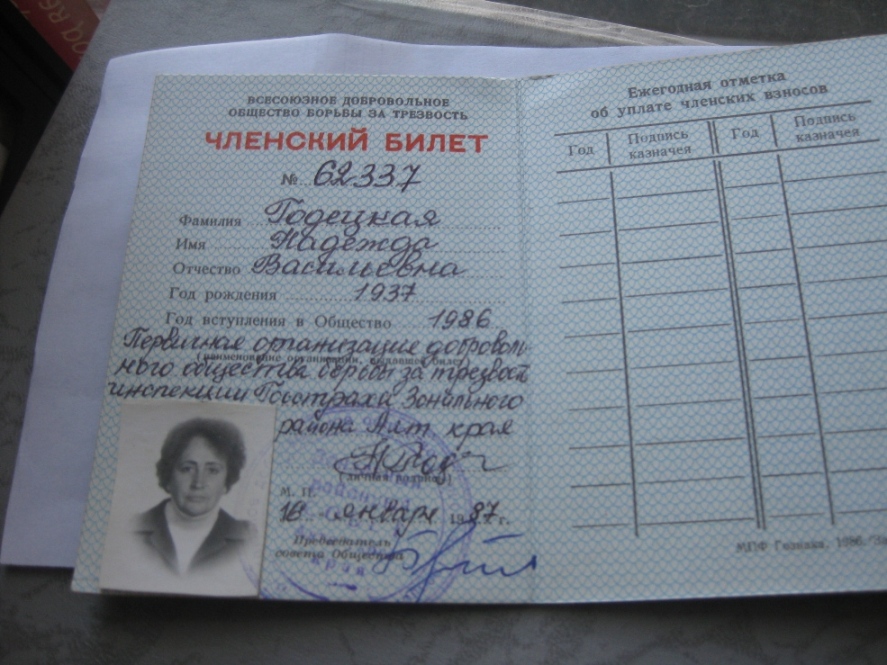 ВСЕСОЮЗНОЕ ДОБРОВОЛЬНОЕ
ОБЩЕСТВО БОРЬБЫ ЗА ТРЕЗВОСТЬ
ЧЛЕНСКИЙ БИЛЕТ
№ 62337
Фамилия Годецкая
Имя Надежда
Отчество Васильевна
Год рождения 1937
Год вступления в Общество 1986
Первичная организацие доброволь
(наименование организации, выдавшей билет)
ного общества борьбы за трезвость
инспекции Госстраха Зонального
района Алт края
(личная подпись)
М. П.
16 январе 1987 г.
Председатель
совета Общества
края
Ежегодная отметка
об уплате членских взносов
Год Подпись казначея Год Подпись казначея
МПФ Гознака. 1986.